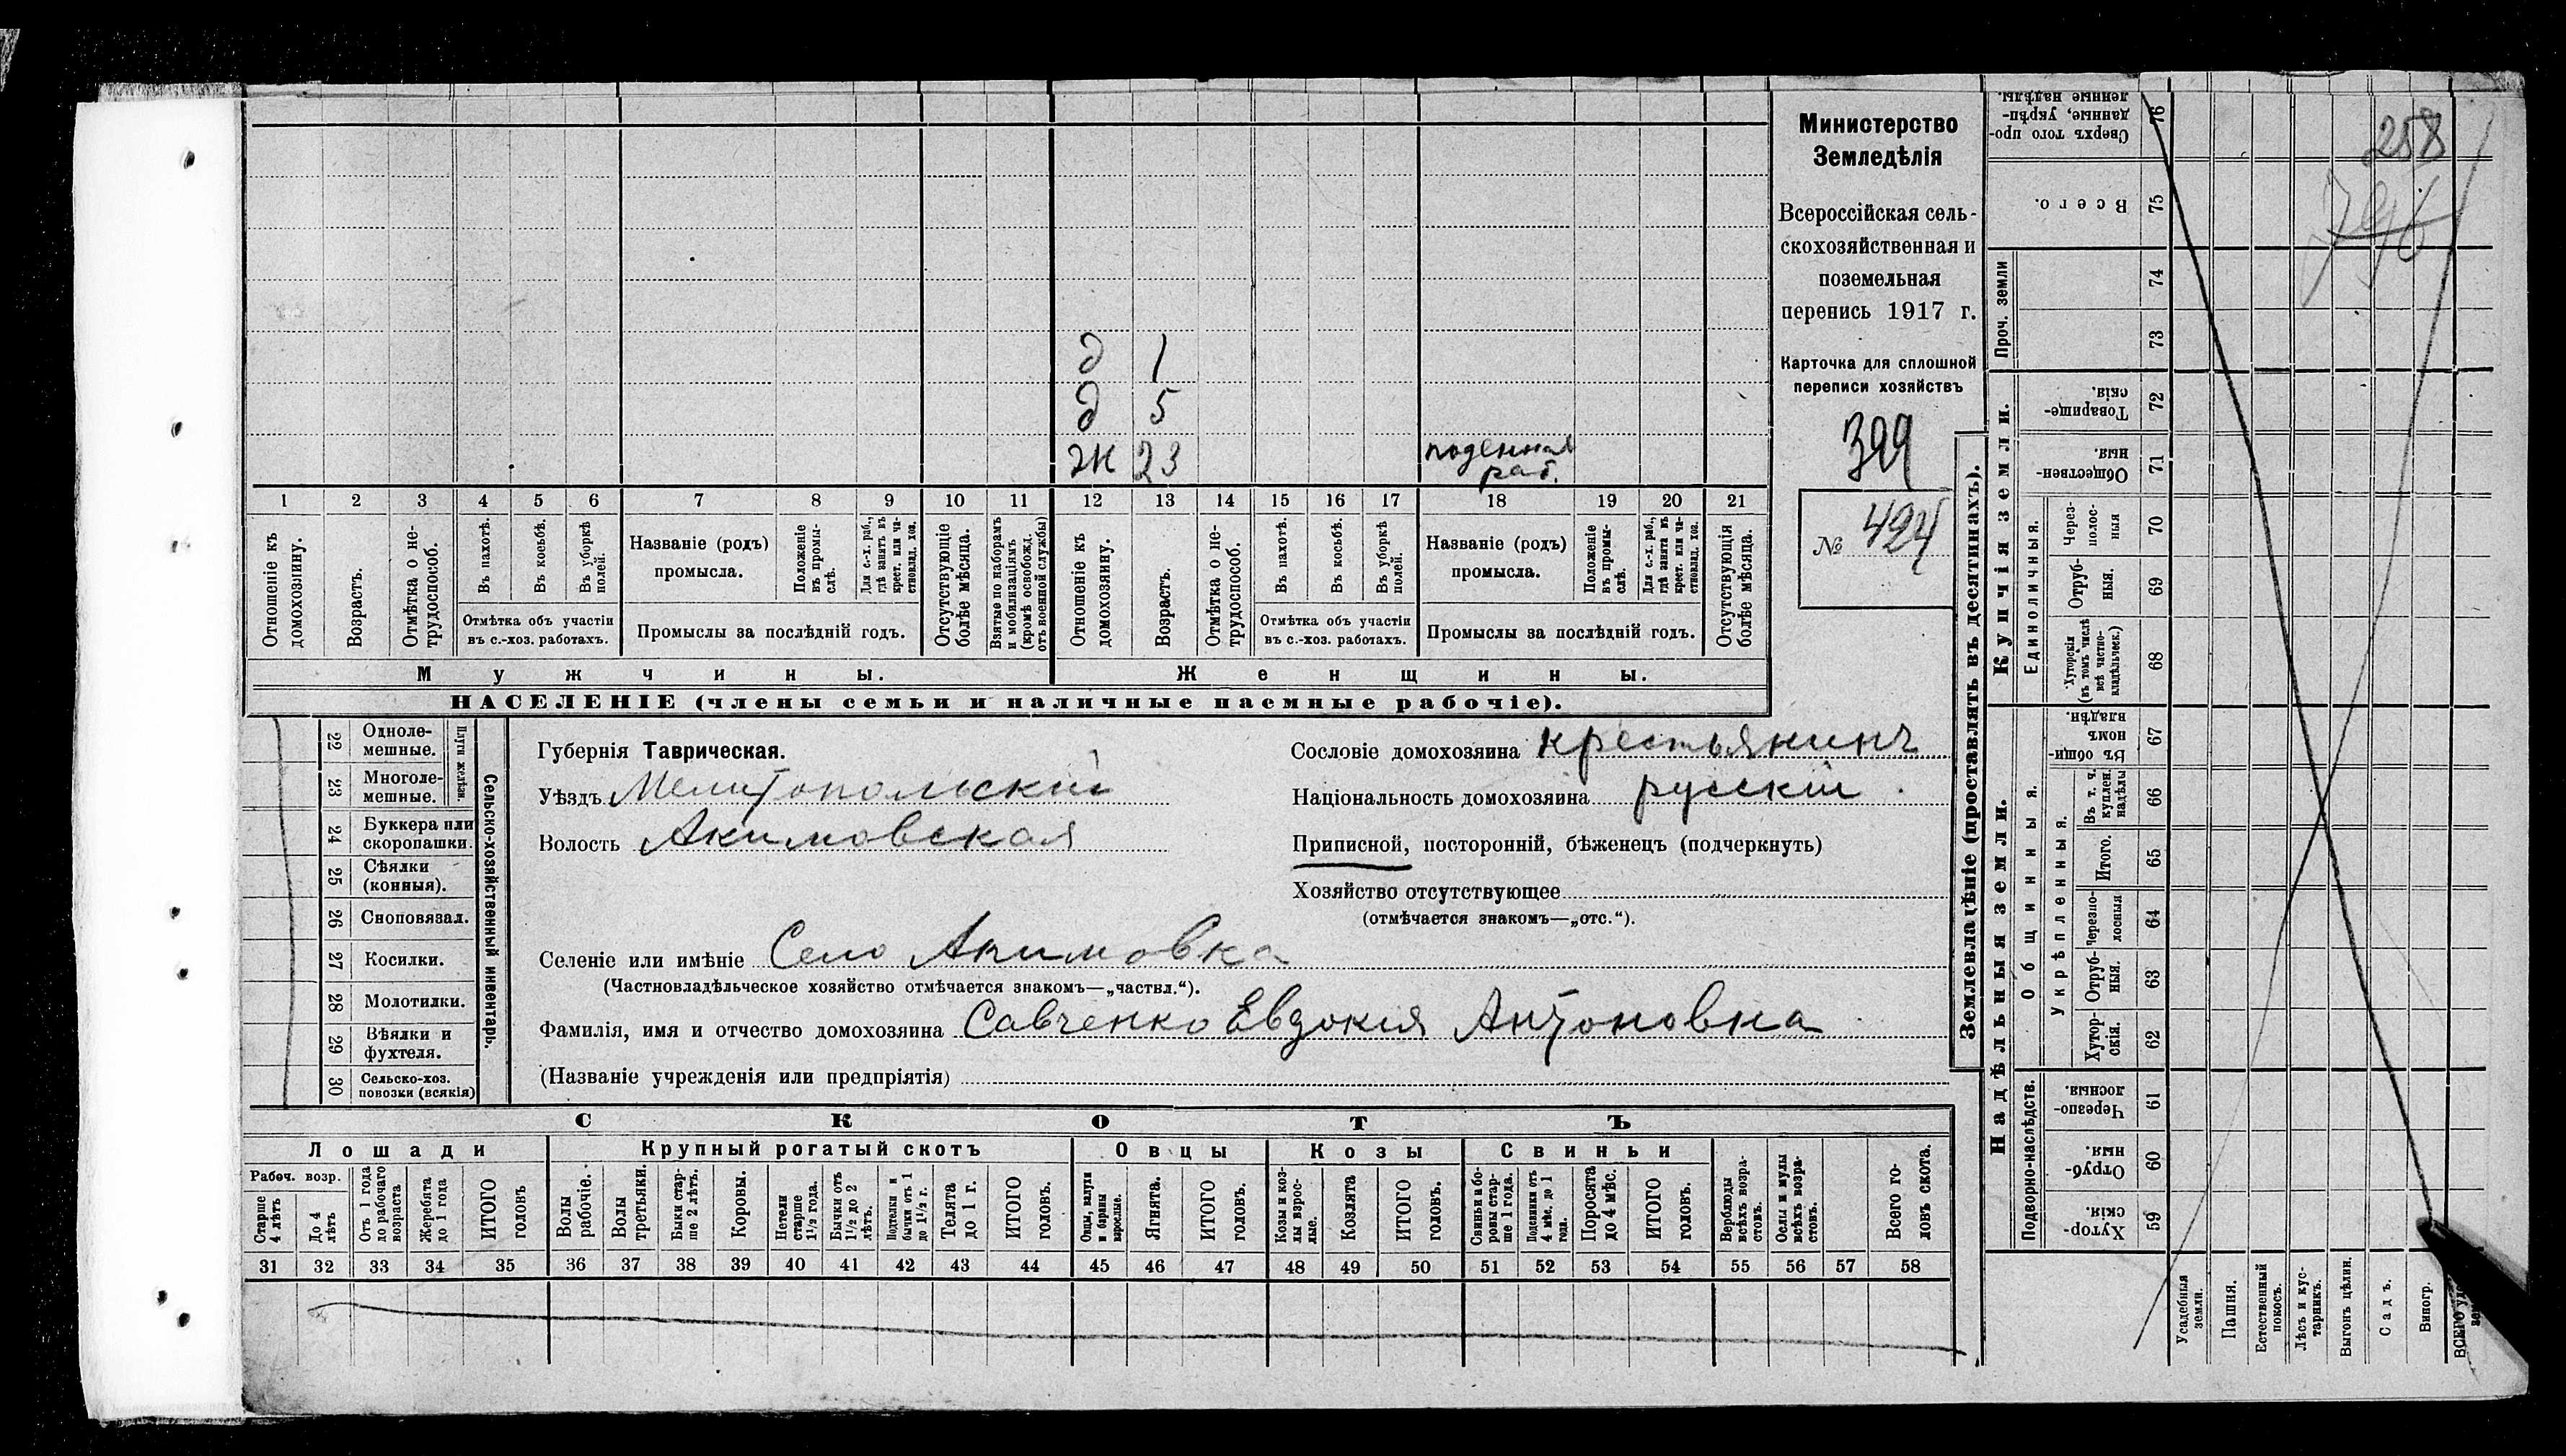 Министерство
Земледѣлія
Всероссійская сель-
скохозяйственная и
поземельная
перепись 1917 г.
Карточка для сплошной
переписи хозяйствъ
399
№ 424
258
796
д 1
д 5
ж 23 поденная
раб.
1 2 3 4 5 6 7 8 9 10 11 12 13 14 15 16 17 18 19 20 21
Отношеніе къ домохозяину.
Возрастъ.
Отмѣтка о не-трудоспособ.
Въ пахотѣ.
Въ косьбѣ.
Въ уборкѣ полей.
Отмѣтка объ участіи
въ с.-хоз. работахъ.
Названіе (родъ)
промысла.
Положеніе въ промы-слѣ.
Для с.-х. раб., гдѣ занятъ въ крест. или ча-стновлад. хоз.
Промыслы за послѣдній годъ.
Отсутствующіе болѣе мѣсяца.
Взятые по наборамъ и мобилизаціямъ (кромѣ освобожд. отъ военной службы)
Отношеніе къ домохозяину.
Возрастъ.
Отмѣтка о не-трудоспособ.
Въ пахотѣ.
Въ косьбѣ.
Въ уборкѣ полей.
Отмѣтка объ участіи
въ с.-хоз. работахъ.
Названіе (родъ)
промысла.
Положеніе въ промы-слѣ.
Для с.-х. раб., гдѣ занята въ крест. или ча-стновлад. хоз.
Промыслы за послѣдній годъ.
Отсутствующія болѣе мѣсяца.
Мужчины.
Женщины.
НАСЕЛЕНІЕ (члены семьи и наличные наемные рабочіе).
22 Однолемешные.
23 Многолемешные.
Плуги желѣзн.
24 Буккера или скоропашки.
25 Сѣялки (конныя).
26 Сноповязал.
27 Косилки.
28 Молотилки.
29 Вѣялки и фухтеля.
30 Сельско-хоз. повозки (всякія)
Сельско-хозяйственный инвентарь.
Губернія Таврическая.
Уѣздъ Мелитопольскій
Волость Акимовская
Сословіе домохозяина крестьянинъ
Національность домохозяина русскій
Приписной, посторонній, бѣженецъ (подчеркнуть)
Хозяйство отсутствующее
(отмѣчается знакомъ—„отс.“).
Селеніе или имѣніе Село Акимовка
(Частновладѣльческое хозяйство отмѣчается знакомъ—„частвл.“).
Фамилія, имя и отчество домохозяина Савченко Евдокія Антоновна
(Названіе учрежденія или предпріятія)
СКОТЪ
Лошади
Крупный рогатый скотъ
Овцы
Козы
Свиньи
Рабоч. возр.
Старше 4 лѣтъ
До 4 лѣтъ
Отъ 1 года до рабочаго возраста
Жеребята до 1 года
ИТОГО головъ
Волы рабочіе.
Волы третьяки.
Быки стар-ше 2 лѣтъ.
Коровы.
Нетели старше 1½ года.
Бычки отъ 1½ до 2 лѣтъ.
Подтелки и бычки отъ 1 до 1½ г.
Телята до 1 г.
ИТОГО головъ.
Овцы, валухи и бараны взрослые.
Ягнята.
ИТОГО головъ.
Козы и коз-лы взрос-лые.
Козлята
ИТОГО головъ.
Свиньи и бо-ровы стар-ше 1 года.
Подсвинки отъ 4 мѣс. до 1 года.
Поросята до 4 мѣс.
ИТОГО головъ.
Верблюды всѣхъ возра-стовъ.
Ослы и мулы всѣхъ возра-стовъ.
Всего го-ловъ скота.
31 32 33 34 35 36 37 38 39 40 41 42 43 44 45 46 47 48 49 50 51 52 53 54 55 56 57 58
Землевладѣніе (проставлять въ десятинахъ).
Купчія земли.
Надѣльныя земли.
Проч. земли
Единоличныя.
Общинныя.
Укрѣпленныя.
Подворно-наслѣдств.
Сверхъ того про-данные, укрѣп-ленные надѣлы. 76
Всего. 75
74
73
Товарище-скія. 72
Обществен-ныя. 71
Через-полос-ныя 70
Отруб-ныя. 69
Хуторскія (въ томъ числѣ всѣ частно-владѣльческ.) 68
Въ общи-номъ владѣн. 67
Въ т. ч. куплен. надѣлы 66
Итого. 65
Черезпо-лосныя 64
Отруб-ныя. 63
Хутор-скія. 62
Черезпо-лосныя. 61
Отруб-ныя. 60
Хутор-скія. 59
Усадебныя земли.
Пашня.
Естественный покосъ.
Лѣсъ и кус-тарникъ.
Выгонъ цѣлин.
Садъ.
Виногр.
ВСЕГО